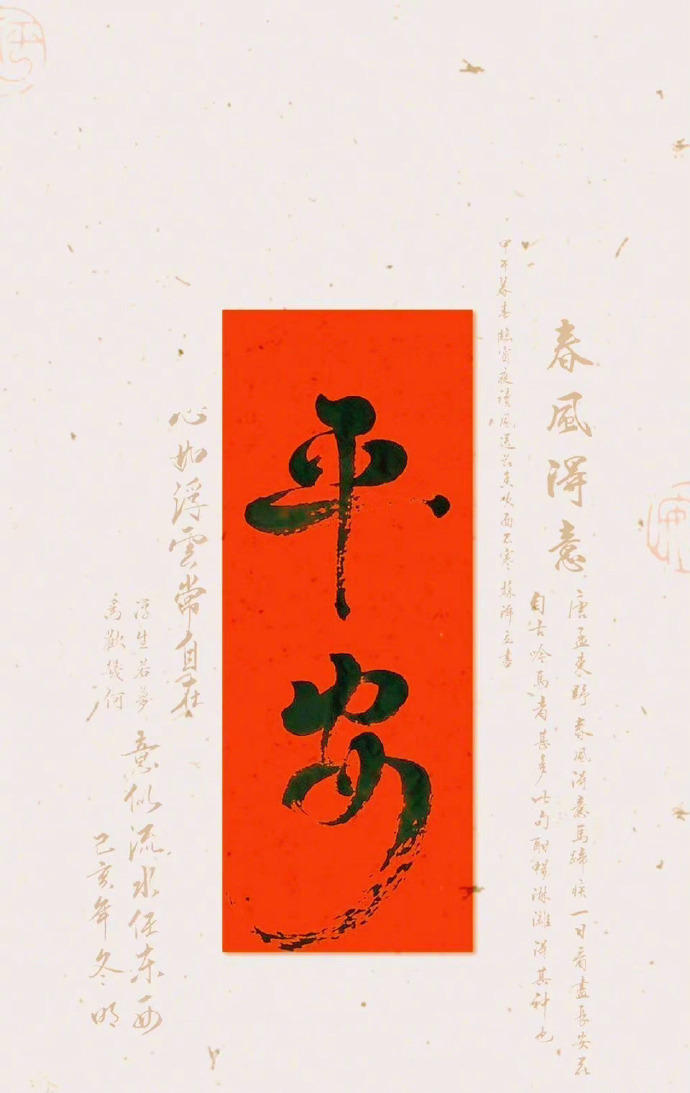 春風得意
唐孟東野春風得意馬蹄疾一日看盡長安花
自古吟馬者甚多此句酣暢淋灕得其神也
甲午暮春臨窗夜讀風送花香吹面不寒
平安
心如浮雲常自在
浮生若夢
為歡幾何
意似流水任東西
己亥年冬明